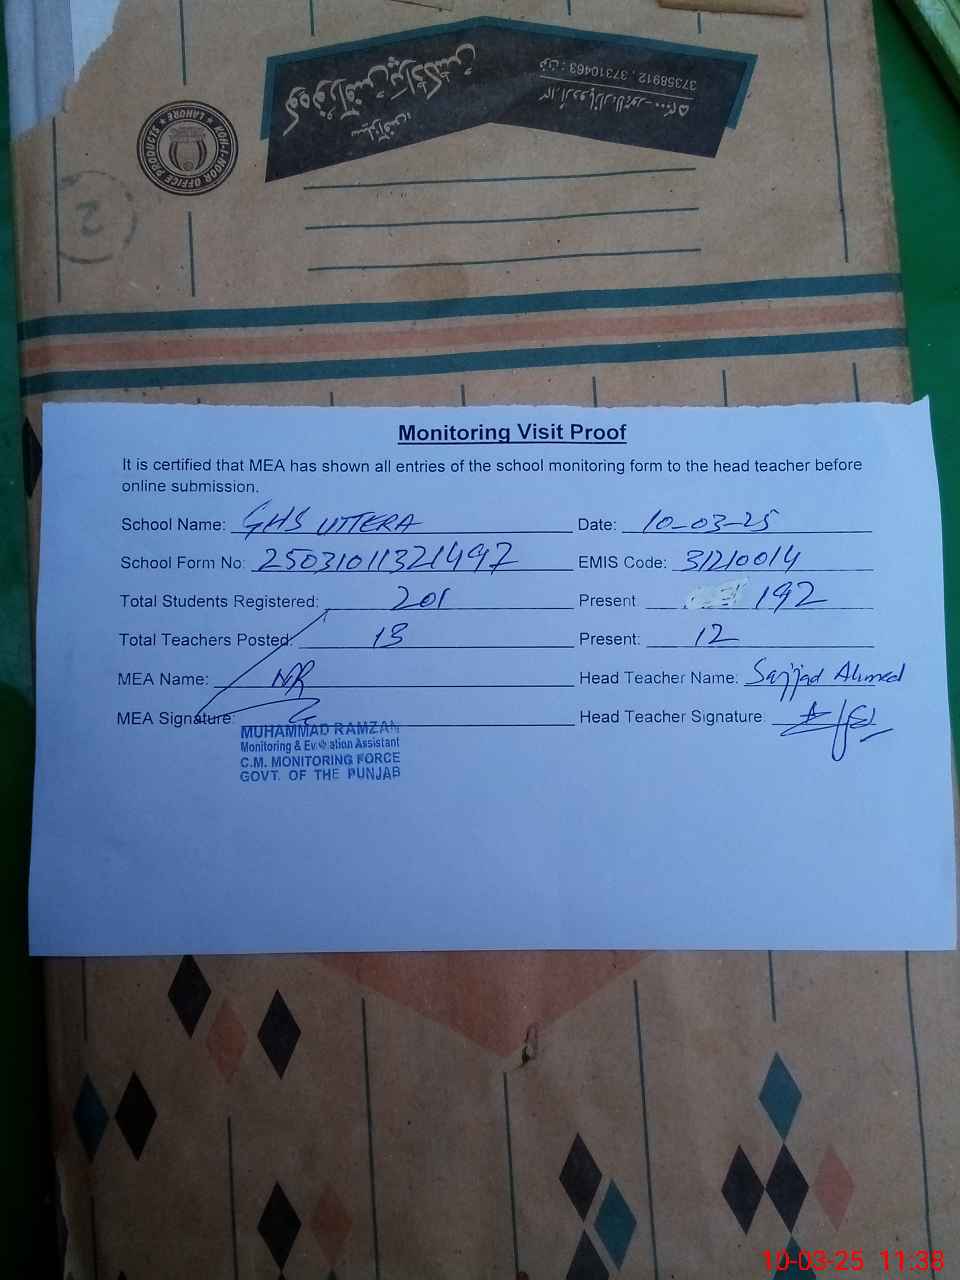 کوہ نور آفس پراڈکٹس
37358912 , 37310463 : فون
KOH-I-NOOR OFFICE PRODUCTS ★ LAHORE ★
2
Monitoring Visit Proof
It is certified that MEA has shown all entries of the school monitoring form to the head teacher before
online submission.
School Name: GHS UTTERA Date: 10-03-25
School Form No: 25031011321497 EMIS Code: 31210014
Total Students Registered: 201 Present 192
Total Teachers Posted: 13 Present: 12
MEA Name: MR Head Teacher Name: Sajjad Ahmed
MEA Signature: Head Teacher Signature:
MUHAMMAD RAMZAN
Monitoring & Evaluation Assistant
C.M. MONITORING FORCE
GOVT. OF THE PUNJAB
10-03-25 11:38